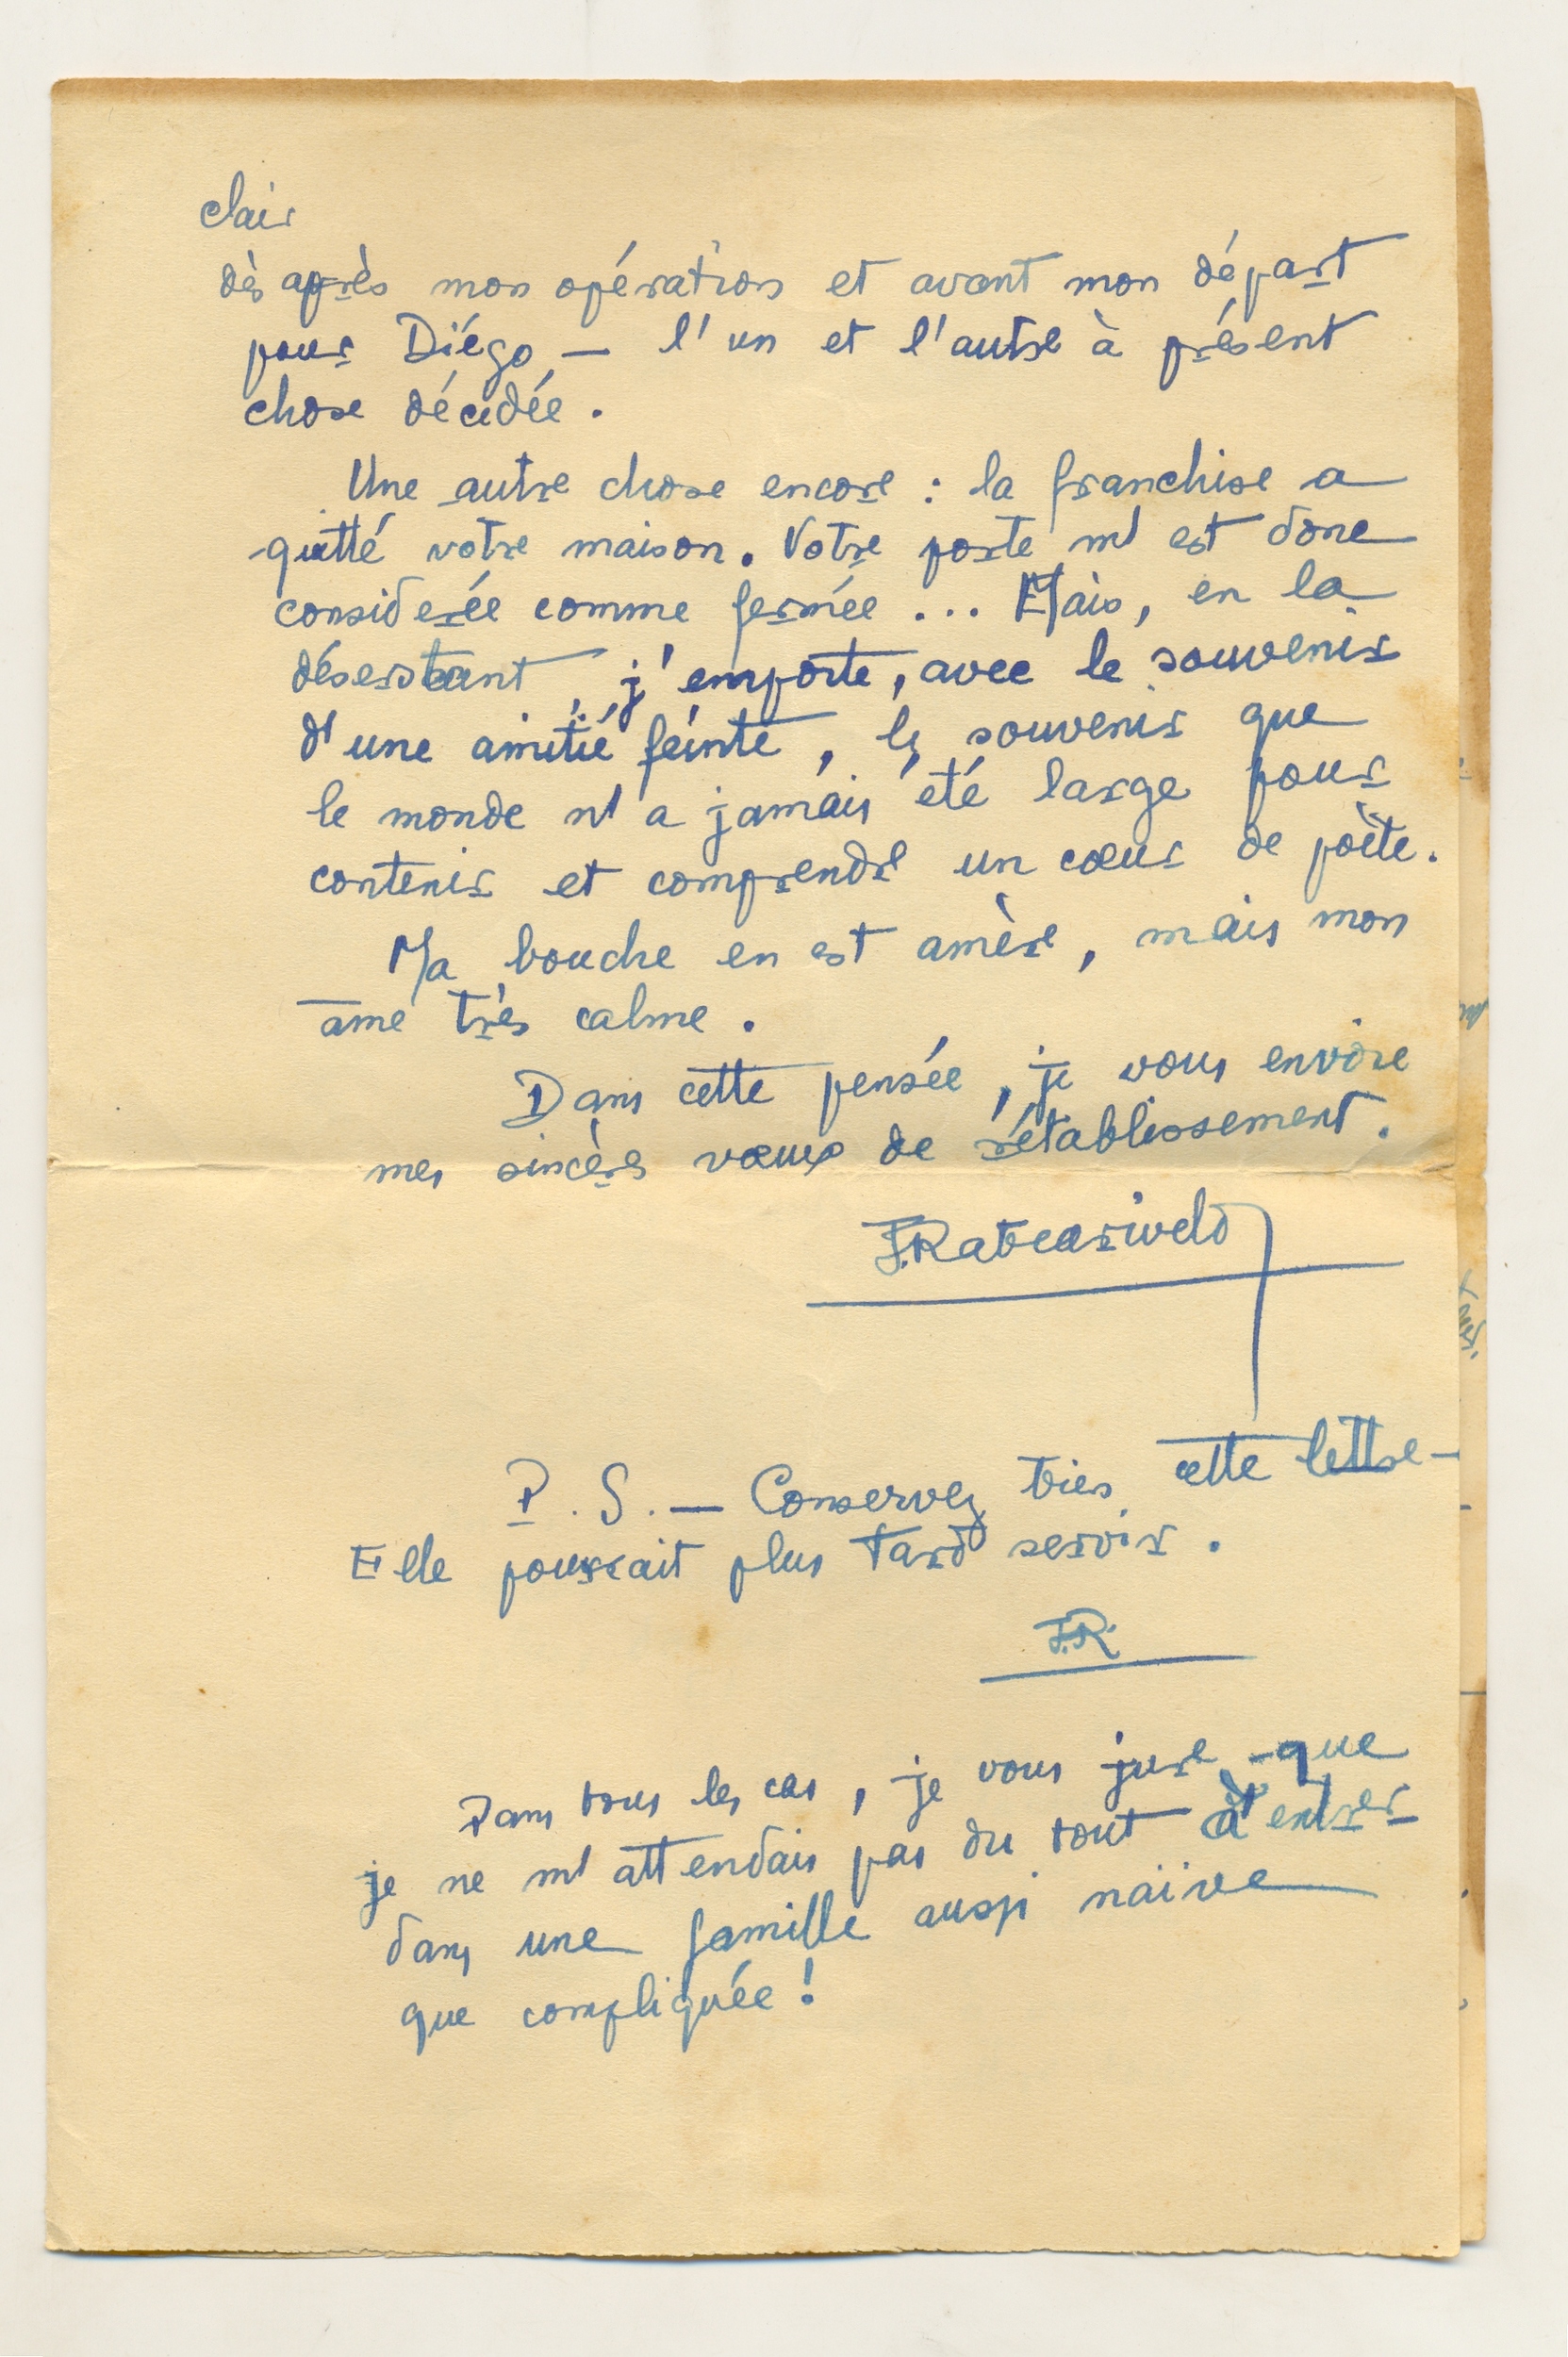 clair
dès après mon opération et avant mon départ
pour Diégo — l'un et l'autre à présent
chose décidée.
Une autre chose encore : la franchise a
quitté votre maison. Votre porte m'est donc
considerée comme fermée ... Mais, en la
désertant, j'emporte, avec le souvenir
d'une amitié feinte, le souvenir que
le monde n'a jamais été large pour
contenir et comprendre un cœur de poète.
Ma bouche en est amère, mais mon
âme très calme.
Dans cette pensée, je vous envoie
mes sincères vœux de rétablissement.
P.S. — Conservez bien cette lettre —
Elle pourrait plus tard servir.
J.R.
Dans tous les cas, je vous jure que
je ne m'attendais pas du tout à entrer
dans une famille aussi naïve
que compliquée !